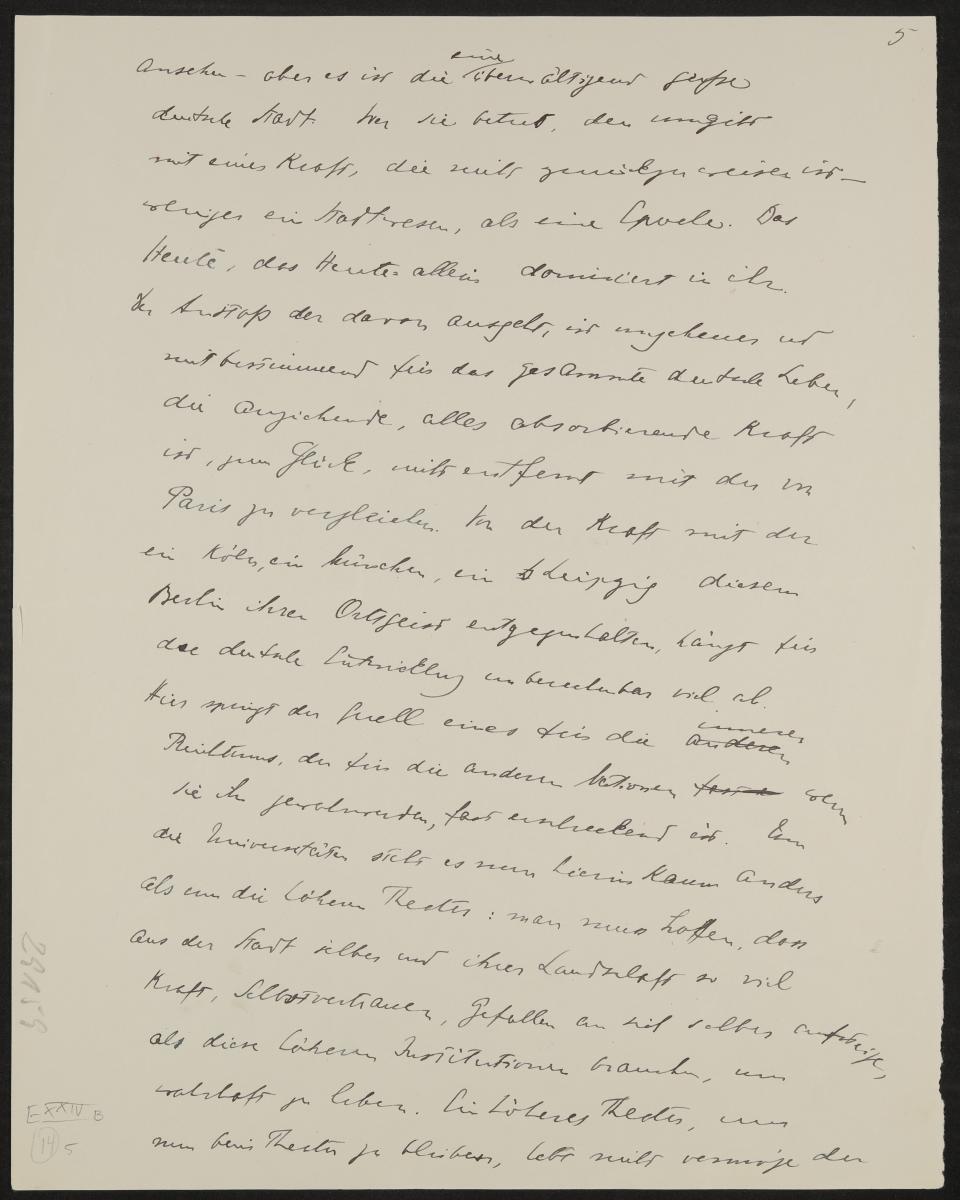 5
ansehen – aber es ist die eine überwältigend große
deutsche Stadt. Wer sie betritt, den umgibt
mit einer Kraft, die nicht zurückzuweisen ist –
weniger ein Stadtwesen, als eine Epoche. Das
Heute, das Heute allein dominiert in ihr.
Der Anstoß der davon ausgeht, ist ungeheuer und
mitbestimmend für das gesammte deutsche Leben,
die anziehende, alles absorbierende Kraft
ist, zum Glück, nicht entfernt mit der von
Paris zu vergleichen. Von der Kraft mit der
ein Köln, ein München, ein Leipzig diesem
Berlin ihren Ortsgeist entgegenhalten, hängt für
die deutsche Entwicklung unberechenbar viel ab.
Hier springt der Quell eines für die anderen inneren
Reichtums, der für die anderen Nationen wenn
sie ihn gewahrwerden, fast erschreckend ist. Um
die Universitäten steht es nun hierin kaum anders
als um die höheren Theater: man muss hoffen, dass
aus der Stadt selber und ihrer Landschaft so viel
Kraft, Selbstvertrauen, Gefallen an sich selber aufsteige,
als diese höheren Institutionen brauchen, um
wahrhaft zu leben. Ein höheres Theater, um
nun beim Theater zu bleiben, lebt nicht vermöge der
E XXIV B
14 5